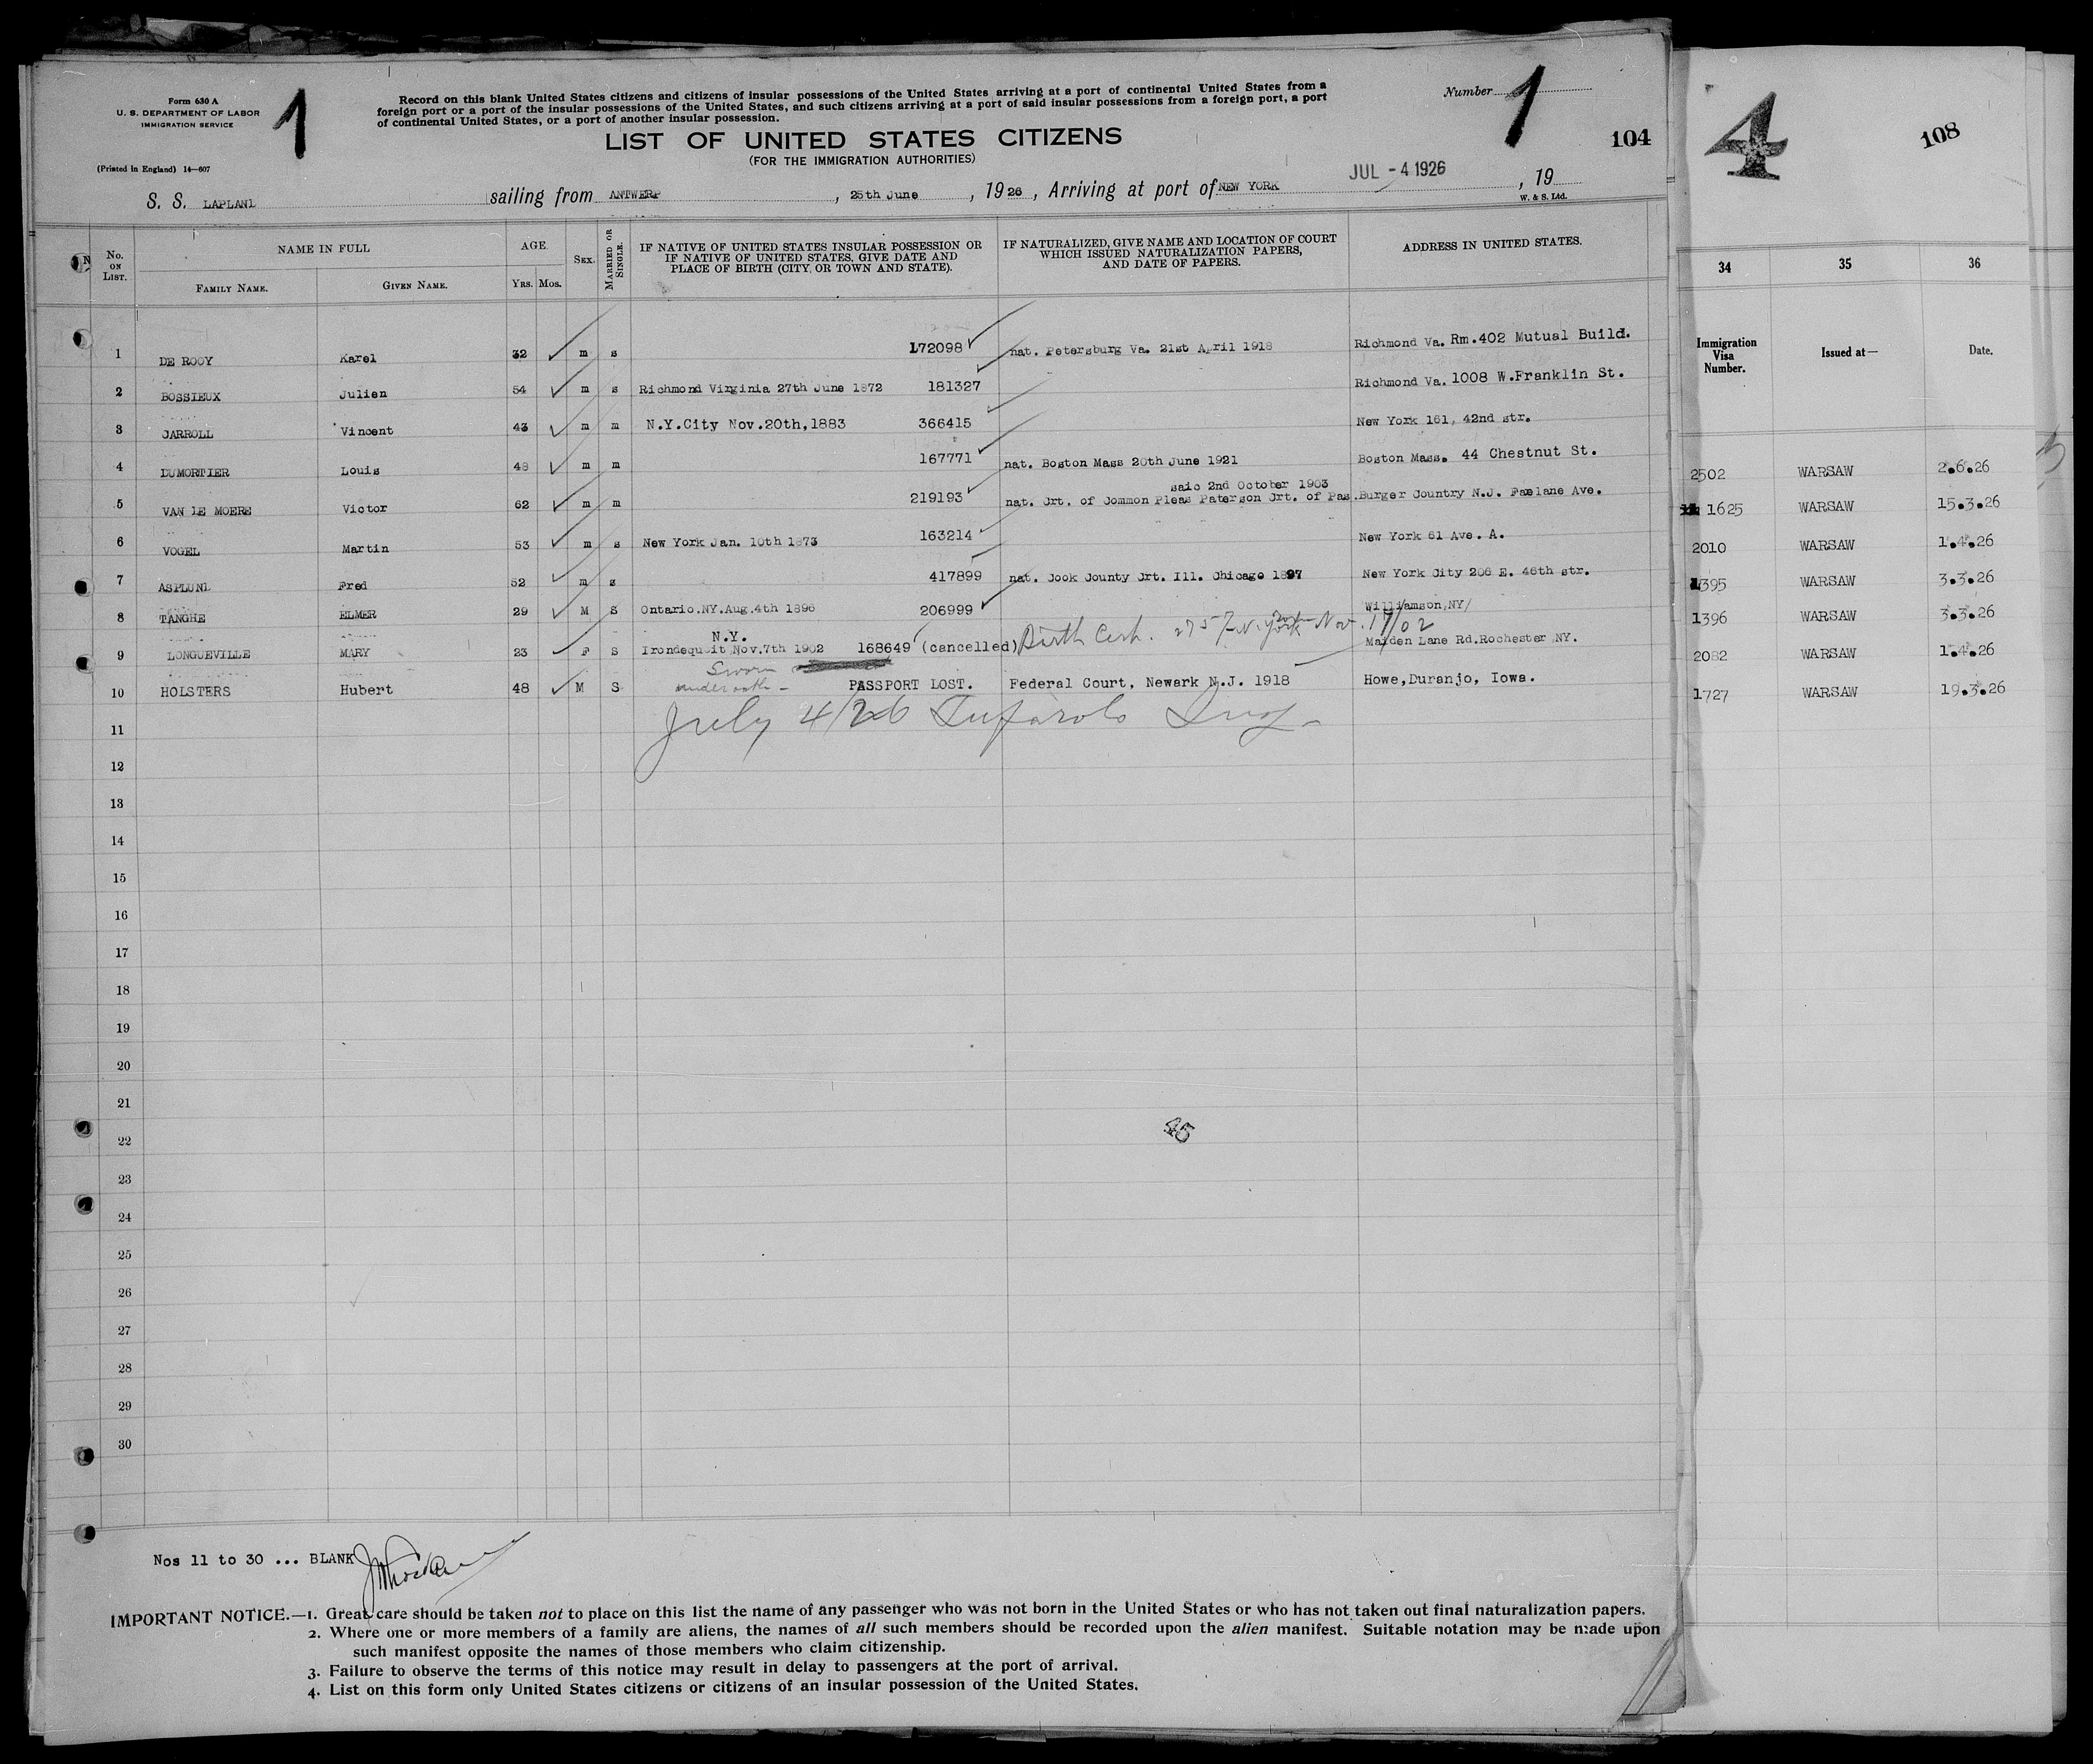 Form 630 A
U. S. DEPARTMENT OF LABOR
IMMIGRATION SERVICE
(Printed in England) 14—607
1
Record on this blank United States citizens and citizens of insular possessions of the United States arriving at a port of continental United States from a
foreign port or a port of the insular possessions of the United States, and such citizens arriving at a port of said insular possessions from a foreign port, a port
of continental United States, or a port of another insular possession.
Number 1
104
LIST OF UNITED STATES CITIZENS
(FOR THE IMMIGRATION AUTHORITIES)
S. S. LAPLAND sailing from ANTWERP, 25th June, 1926, Arriving at port of NEW YORK JUL - 4 1926, 19
W. & S. Ltd.
No. ON LIST. NAME IN FULL AGE. SEX. MARRIED OR SINGLE. IF NATIVE OF UNITED STATES INSULAR POSSESSION OR IF NATIVE OF UNITED STATES, GIVE DATE AND PLACE OF BIRTH (CITY, OR TOWN AND STATE). IF NATURALIZED, GIVE NAME AND LOCATION OF COURT WHICH ISSUED NATURALIZATION PAPERS, AND DATE OF PAPERS. ADDRESS IN UNITED STATES.
FAMILY NAME. GIVEN NAME. YRS. MOS.
1 DE ROOY Karel 32 m s 172098 nat. Petersburg Va. 21st April 1918 Richmond Va. Rm.402 Mutual Build.
2 BOSSIEUX Julien 54 m s Richmond Virginia 27th June 1872 181327 Richmond Va. 1008 W.Franklin St.
3 CARROLL Vincent 43 m m N.Y.City Nov.20th,1883 366415 New York 161, 42nd str.
4 DUMORTIER Louis 48 m m 167771 nat. Boston Mass 20th June 1921 Boston Mass. 44 Chestnut St.
saic 2nd October 1903
5 VAN DE MOERE Victor 62 m m 219193 nat. Crt. of Common Pleas Paterson Crt. of Pas. Burger Country N.J. Ave.
6 VOGEL Martin 53 m s New York Jan. 10th 1873 163214 New York 61 Ave. A.
7 ASPLUND Fred 52 m s 417899 nat. Cook County Crt. Ill. Chicago 1897 New York City 206 E. 46th str.
8 TANGHE ELMER 29 M S Ontario.NY.Aug.4th 1896 206999 Williamson,NY/
N.Y. Birth Cert. 2757 N. York Nov. 17/02
9 LONGUEVILLE MARY 23 F S Irondequoit Nov.7th 1902 168649 (cancelled) Maiden Lane Rd.Rochester NY.
Sworn
under oath -
10 HOLSTERS Hubert 48 M S PASSPORT LOST. Federal Court, Newark N.J. 1918 Howe,Duranjo, Iowa.
July 4/26
11
12
13
14
15
16
17
18
19
20
21
22
45
23
24
25
26
27
28
29
30
Nos 11 to 30 ... BLANK
IMPORTANT NOTICE.—1. Great care should be taken not to place on this list the name of any passenger who was not born in the United States or who has not taken out final naturalization papers.
2. Where one or more members of a family are aliens, the names of all such members should be recorded upon the alien manifest. Suitable notation may be made upon
such manifest opposite the names of those members who claim citizenship.
3. Failure to observe the terms of this notice may result in delay to passengers at the port of arrival.
4. List on this form only United States citizens or citizens of an insular possession of the United States.
4
108
34 35 36
Immigration Visa Number. Issued at— Date.
2502 WARSAW 2.6.26
1625 WARSAW 15.3.26
2010 WARSAW 1.4.26
1395 WARSAW 3.3.26
1396 WARSAW 3.3.26
2082 WARSAW 1.4.26
1727 WARSAW 19.3.26